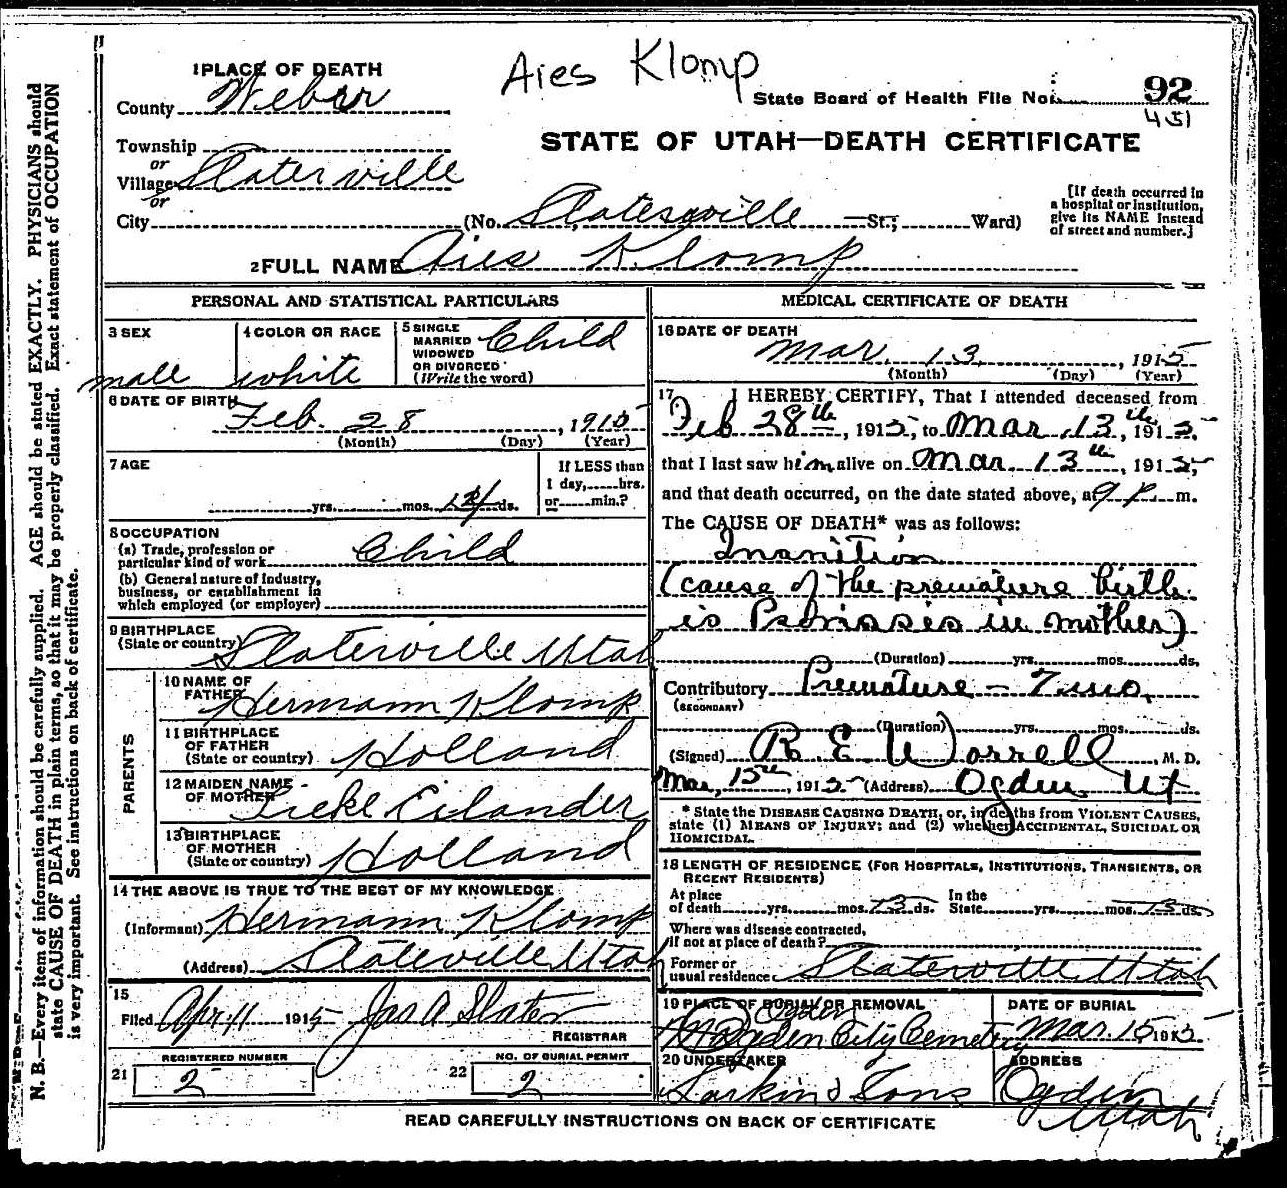 Aies Klomp
1 PLACE OF DEATH
County Weber
State Board of Health File No. 92
451
STATE OF UTAH—DEATH CERTIFICATE
Township
or
Village Slaterville
or
City (No. Slatesville St.; Ward)
[If death occurred in
a hospital or institution,
give its NAME instead
of street and number.]
2 FULL NAME Aies Klomp
PERSONAL AND STATISTICAL PARTICULARS
3 SEX
male
4 COLOR OR RACE
white
5 SINGLE
MARRIED
WIDOWED
OR DIVORCED
(Write the word)
Child
6 DATE OF BIRTH
Feb. 28, 1915
(Month) (Day) (Year)
7 AGE
yrs. mos. 13 ds.
If LESS than
1 day, hrs.
or min.?
8 OCCUPATION
(a) Trade, profession or
particular kind of work Child
(b) General nature of Industry,
business, or establishment in
which employed (or employer)
9 BIRTHPLACE
(State or country) Slaterville Utah
PARENTS
10 NAME OF
FATHER Hermann Klomp
11 BIRTHPLACE
OF FATHER
(State or country) Holland
12 MAIDEN NAME
OF MOTHER Eilander
13 BIRTHPLACE
OF MOTHER
(State or country) Holland
14 THE ABOVE IS TRUE TO THE BEST OF MY KNOWLEDGE
(Informant) Hermann Klomp
(Address) Slateville Utah
15
Filed Apr 11 1915 Jas A Slater
REGISTRAR
REGISTERED NUMBER
21 2
NO. OF BURIAL PERMIT
22 2
MEDICAL CERTIFICATE OF DEATH
16 DATE OF DEATH
Mar. 13, 1915
(Month) (Day) (Year)
17 I HEREBY CERTIFY, That I attended deceased from
Feb 28th, 1915, to Mar 13th, 1915,
that I last saw him alive on Mar 13th, 1915,
and that death occurred, on the date stated above, at 9 P. m.
The CAUSE OF DEATH* was as follows:
Inanition
(cause of the premature birth
is Psoriasis in mother)
(Duration) yrs. mos. ds.
Contributory Premature - 7 mo.
(SECONDARY)
(Duration) yrs. mos. ds.
(Signed) R. E. Worrell, M. D.
Mar, 15th, 1915 (Address) Ogden Ut
* State the DISEASE CAUSING DEATH, or, in deaths from VIOLENT CAUSES,
state (1) MEANS OF INJURY; and (2) whether ACCIDENTAL, SUICIDAL OR
HOMICIDAL.
18 LENGTH OF RESIDENCE (FOR HOSPITALS, INSTITUTIONS, TRANSIENTS, OR
RECENT RESIDENTS)
At place
of death yrs. mos. 13 ds. In the
State yrs. mos. 13 ds.
Where was disease contracted,
if not at place of death?
Former or
usual residence Slaterville Utah
19 PLACE OF BURIAL OR REMOVAL
Ogden
Ogden City Cemetery
DATE OF BURIAL
Mar. 15 1915
20 UNDERTAKER
Larkin & Sons
ADDRESS
Ogden
Utah
READ CAREFULLY INSTRUCTIONS ON BACK OF CERTIFICATE
N. B.—Every item of information should be carefully supplied. AGE should be stated EXACTLY. PHYSICIANS should
state CAUSE OF DEATH in plain terms, so that it may be properly classified. Exact statement of OCCUPATION
is very important. See instructions on back of certificate.